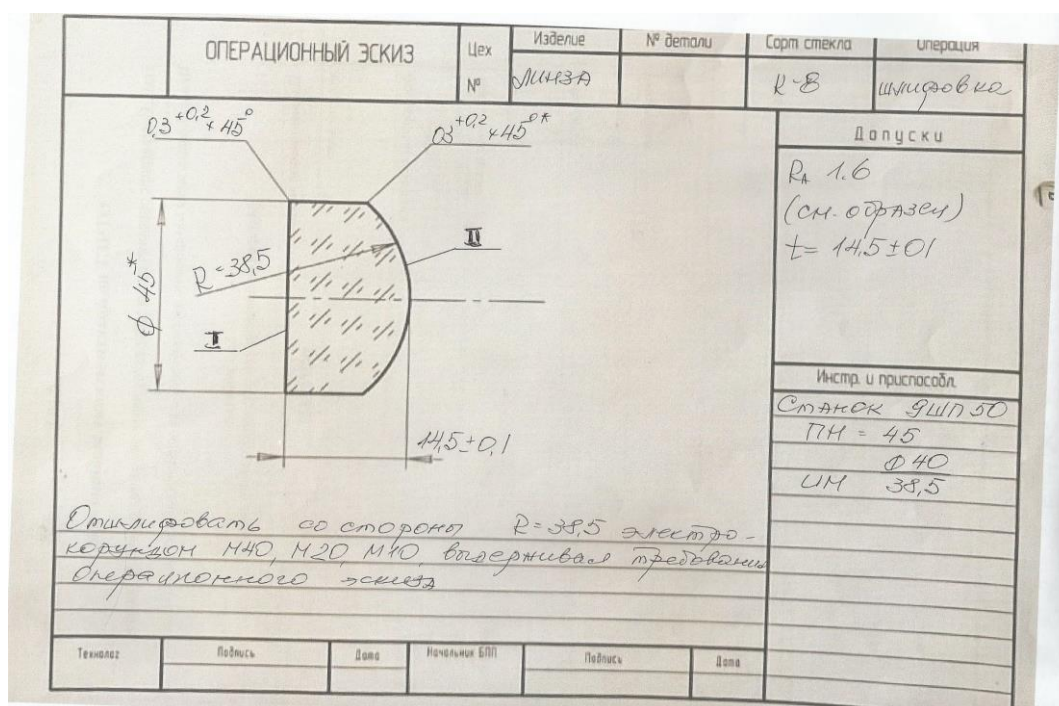 ОПЕРАЦИОННЫЙ ЭСКИЗ
Цех
№
Изделие
№ детали
Сорт стекла
Операция
ЛИНЗА
К-8
шлифовка
0,3 +0,2 × 45°
03 +0,2 × 45° *
Допуски
RA 1.6
(см. образец)
t = 14,5 ± 01
II
R=38,5
ϕ 45*
I
14,5±0,1
Инстр. и приспособл.
Станок 9ШП 50
ПН = 45
Ф 40
ШМ 38,5
Отшлифовать со стороны R=38,5 электро-
корундом М40, М20, М10, выдерживая требования
операционного эскиза
Технолог
Подпись
Дата
Начальник БПП
Подпись
Дата